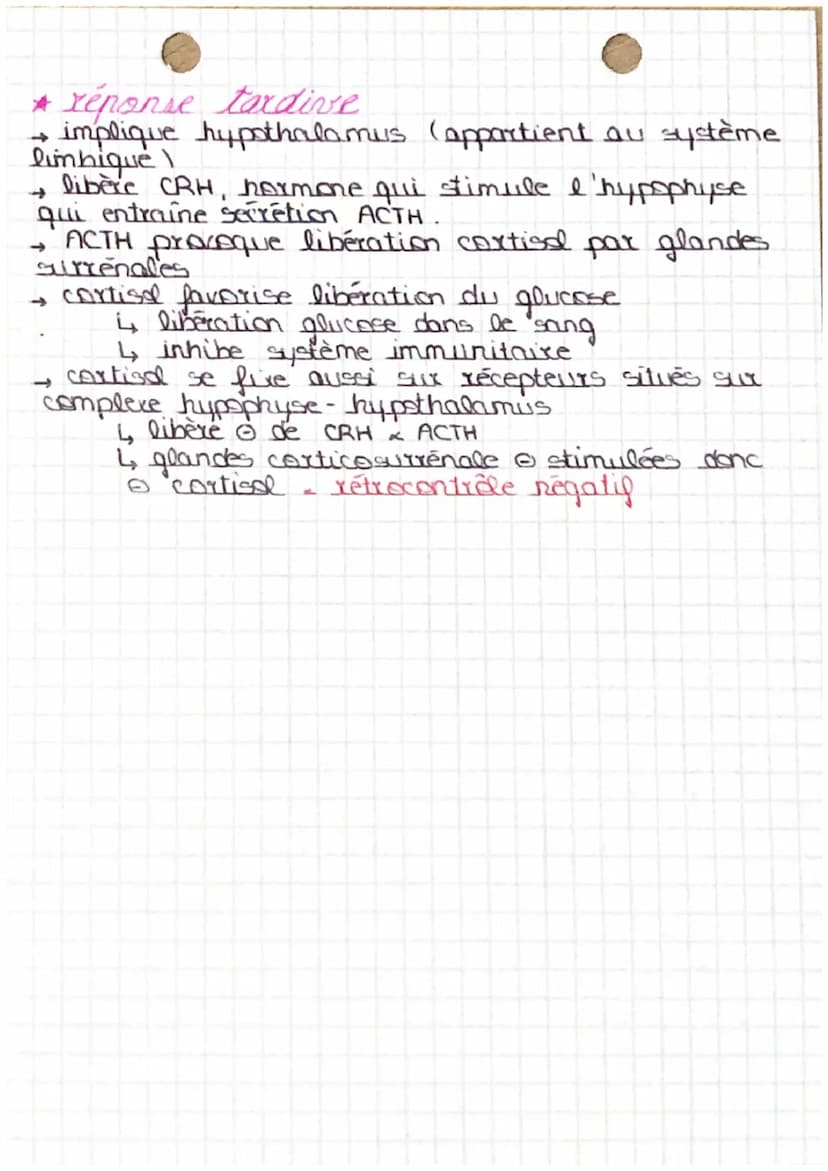 * réponse tardive
→ implique hypothalamus (appartient au système
limbique)
→ libère CRH, hormone qui stimule l'hypophyse
qui entraîne sécrétion ACTH.
→ ACTH provoque libération cortisol par glandes
surrénales
→ cortisol favorise libération du glucose
↳ libération glucose dans le sang
↳ inhibe système immunitaire
→ cortisol se fixe aussi sur récepteurs situés sur
complexe hypophyse - hypothalamus
↳ libère ⊖ de CRH & ACTH
↳ glandes corticosurrénale ⊖ stimulées donc
⊖ cortisol = rétrocontrôle négatif